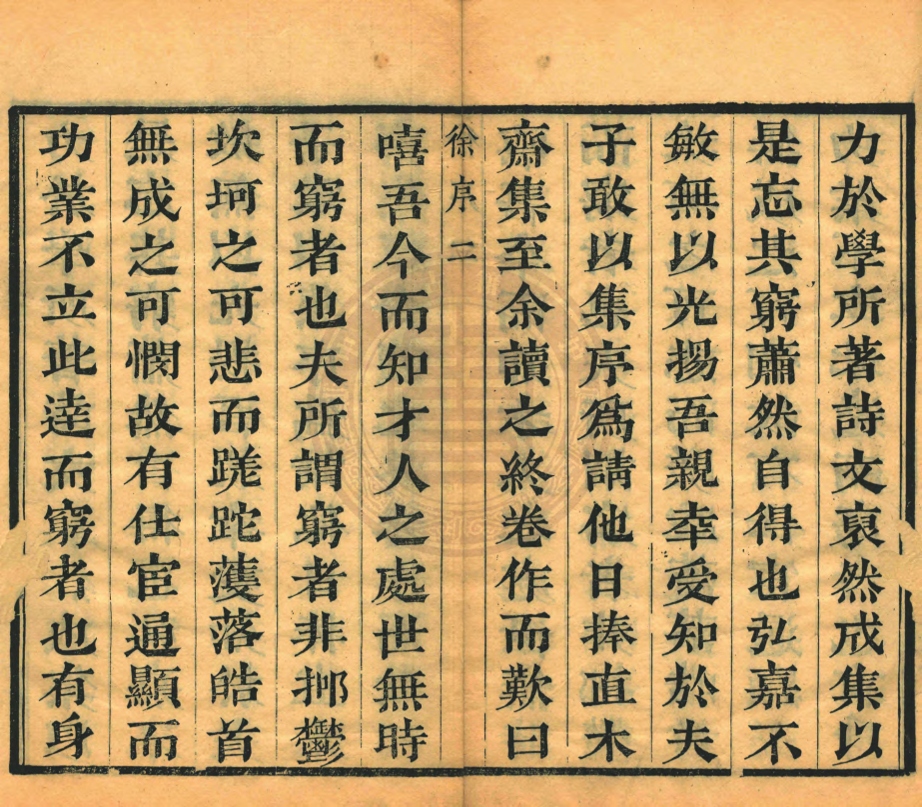 力於學所著詩文裒然成集以
是忘其窮蕭然自得也弘嘉不
敏無以光揚吾親幸受知於夫
子敢以集序爲請他日捧直木
齋集至余讀之終卷作而歎曰
徐序 二
嘻吾今而知才人之處世無時
而窮者也夫所謂窮者非抑鬱
坎坷之可悲而蹉跎蕿落皓首
無成之可憫故有仕宦通顯而
功業不立此逹而窮者也有身